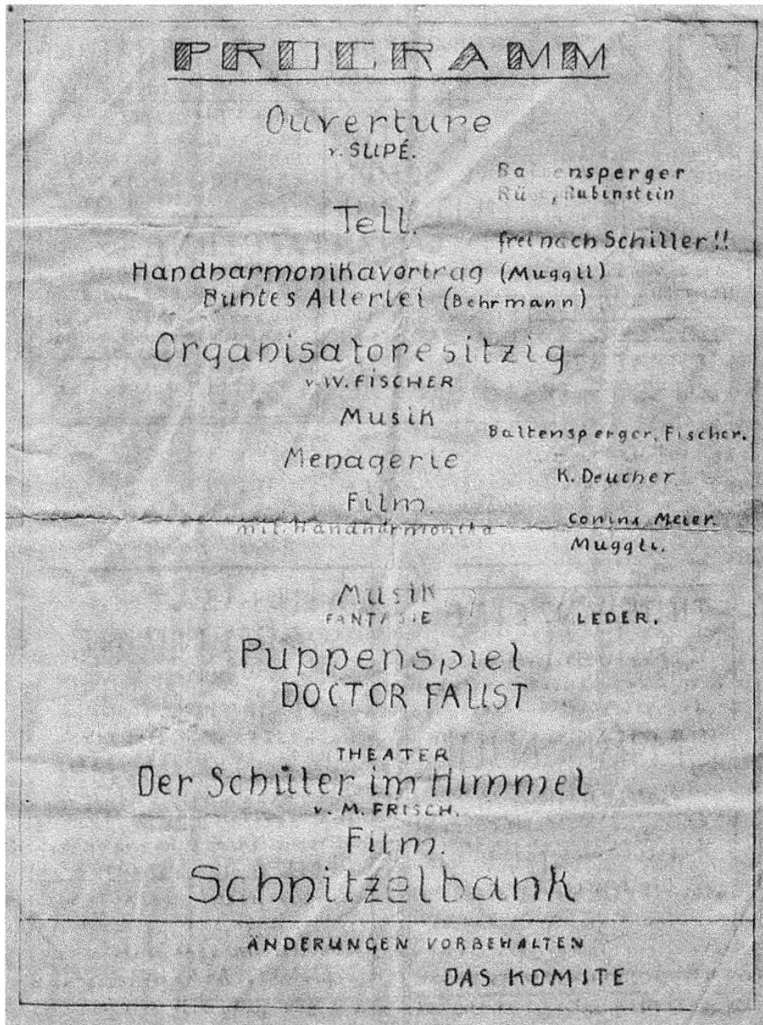 PROGRAMM
Ouverture
v. SUPÉ.
Baltensperger
Rüst, Rubinstein
Tell.
frei nach Schiller!!
Handharmonikavortrag (Muggli)
Buntes Allerlei (Behrmann)
Organisatoresitzig
v. W. FISCHER
Musik
Baltensperger, Fischer.
Menagerie
K. Deucher
Film.
Meier.
mit
Muggli.
Musik
FANTASIE LEDER.
Puppenspiel
DOCTOR FAUST
THEATER
Der Schüler im Himmel
v. M. FRISCH.
Film.
Schnitzelbank
ÄNDERUNGEN VORBEHALTEN
DAS KOMITE